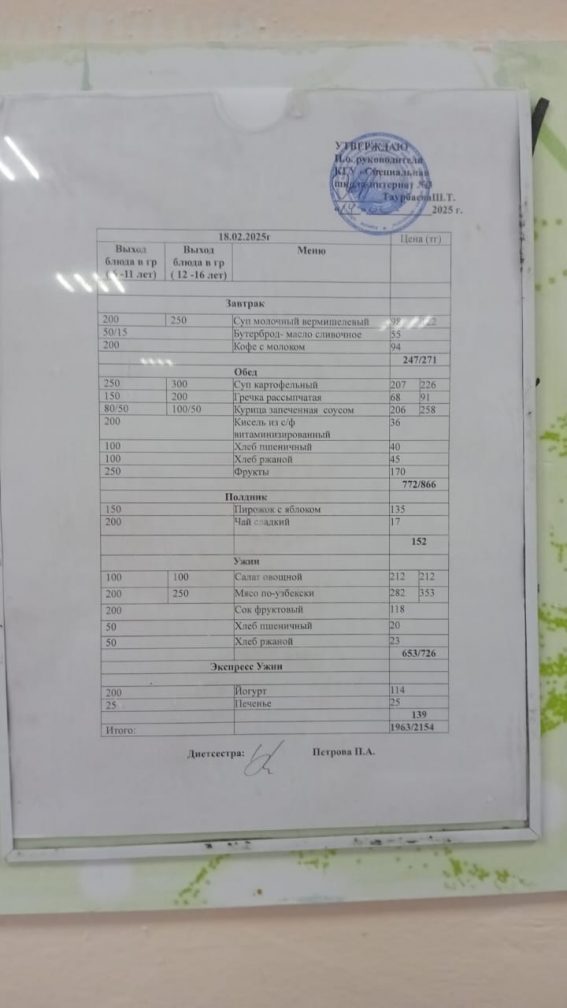 УТВЕРЖДАЮ
И.о. руководителя
КГУ «Специальная
школа-интернат №3
Таурбаева Ш.Т.
2025 г.
18.02.2025г Цена (тг)
Выход блюда в гр ( -11 лет) Выход блюда в гр ( 12 -16 лет) Меню
Завтрак
200 250 Суп молочный вермишелевый
50/15 Бутерброд- масло сливочное 55
200 Кофе с молоком 94
247/271
Обед
250 300 Суп картофельный 207 226
150 200 Гречка рассыпчатая 68 91
80/50 100/50 Курица запеченная соусом 206 258
200 Кисель из с/ф 36
витаминизированный
100 Хлеб пшеничный 40
100 Хлеб ржаной 45
250 Фрукты 170
772/866
Полдник
150 Пирожок с яблоком 135
200 Чай сладкий 17
152
Ужин
100 100 Салат овощной 212 212
200 250 Мясо по-узбекски 282 353
200 Сок фруктовый 118
50 Хлеб пшеничный 20
50 Хлеб ржаной 23
653/726
Экспресс Ужин
200 Йогурт 114
25 Печенье 25
139
Итого: 1963/2154
Диетсестра: Петрова П.А.